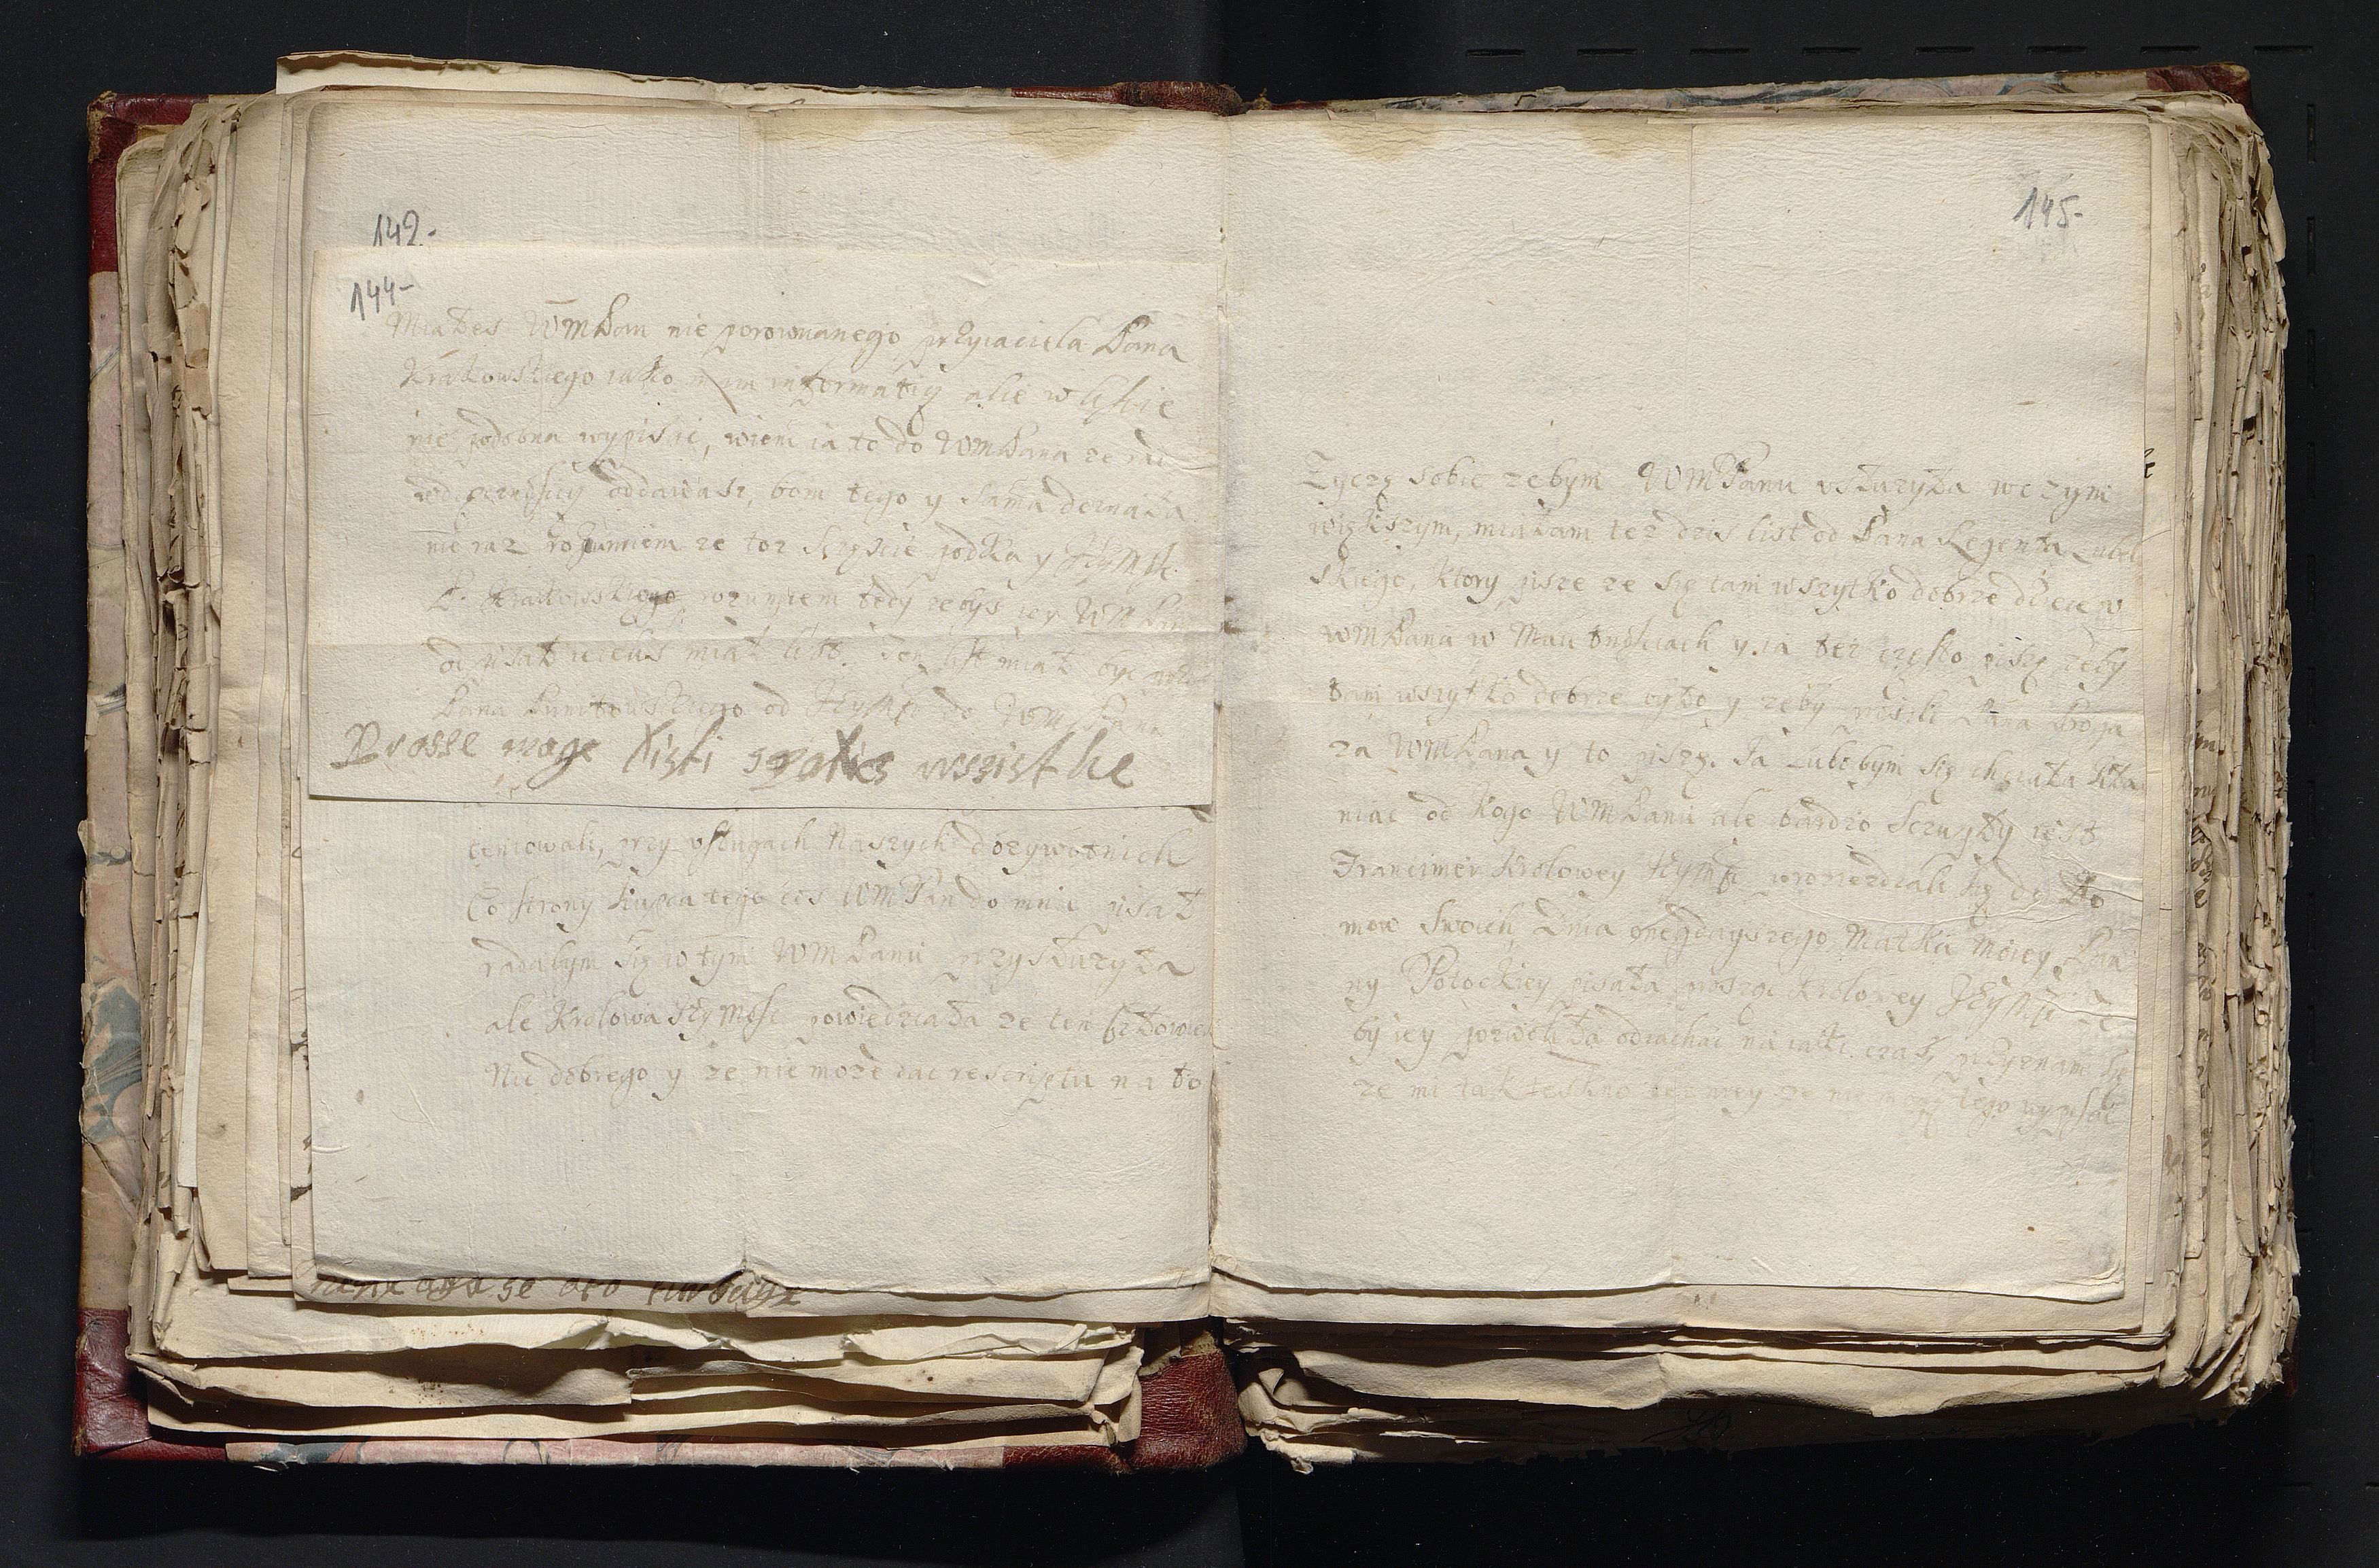 142.
144-
Miałes WMPan nie porownanego przyiaciela Pana
Krakowskiego iako mam informatią alie w liscie
nie podobna wypisac, wiem ia to do WMPana ze rad
wdzięcznosci oddawasz, bom tego y sama doznała
nie raz rozumiem ze toz sczęscie podka y Jeymsc
P. Krakowskiego rozumiem tedy zebys iey WMPan
odpisał iezeliś miał list. Ten list miał byc przez
Pana od Jeymsci do WMPana
Prosse moge listi spalicz wssistke
tentowali, przy usługach Naszych dozywotnich
Co strony kupca tego cos WMPan do mnie pisał
radabym się w tym WMPanu przysłuzyła
ale Krolowa Jeymosc powiedziała ze ten człowiek
Nic dobrego y ze nie moze dac rescriptu na to
145-
Zyczę sobie zebym WMPanu usłuzyła w czym
większym, miałam tez dzis list od Pana Regenta Lubel
skiego, ktory pisze ze się tam wszytko dobrze dzieie w
WMPana w Maiętnosciach y ia tez często piszę zeby
tam wszytko dobrze było y zeby prosili Pana Boga
za WMPana y to piszą. Ja Lubobym się chciała kła
niac od kogo WMPanu ale bardzo sczupły iest
Francimer Krolowey Jeymsci poroziezdzali się do Do
mow swoich, Dnia onegdayszego Matka moiey Pan
ny Potockiey pisała prosząc Krolowey Jeymsci ze
by iey pozwoliła odiachac na iaki czas, przyznam się
ze mi tak teskno bez niey ze nie mogę tego wypisac